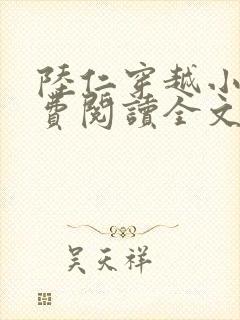 陸仁穿越小
費閱讀全文
吴天祥